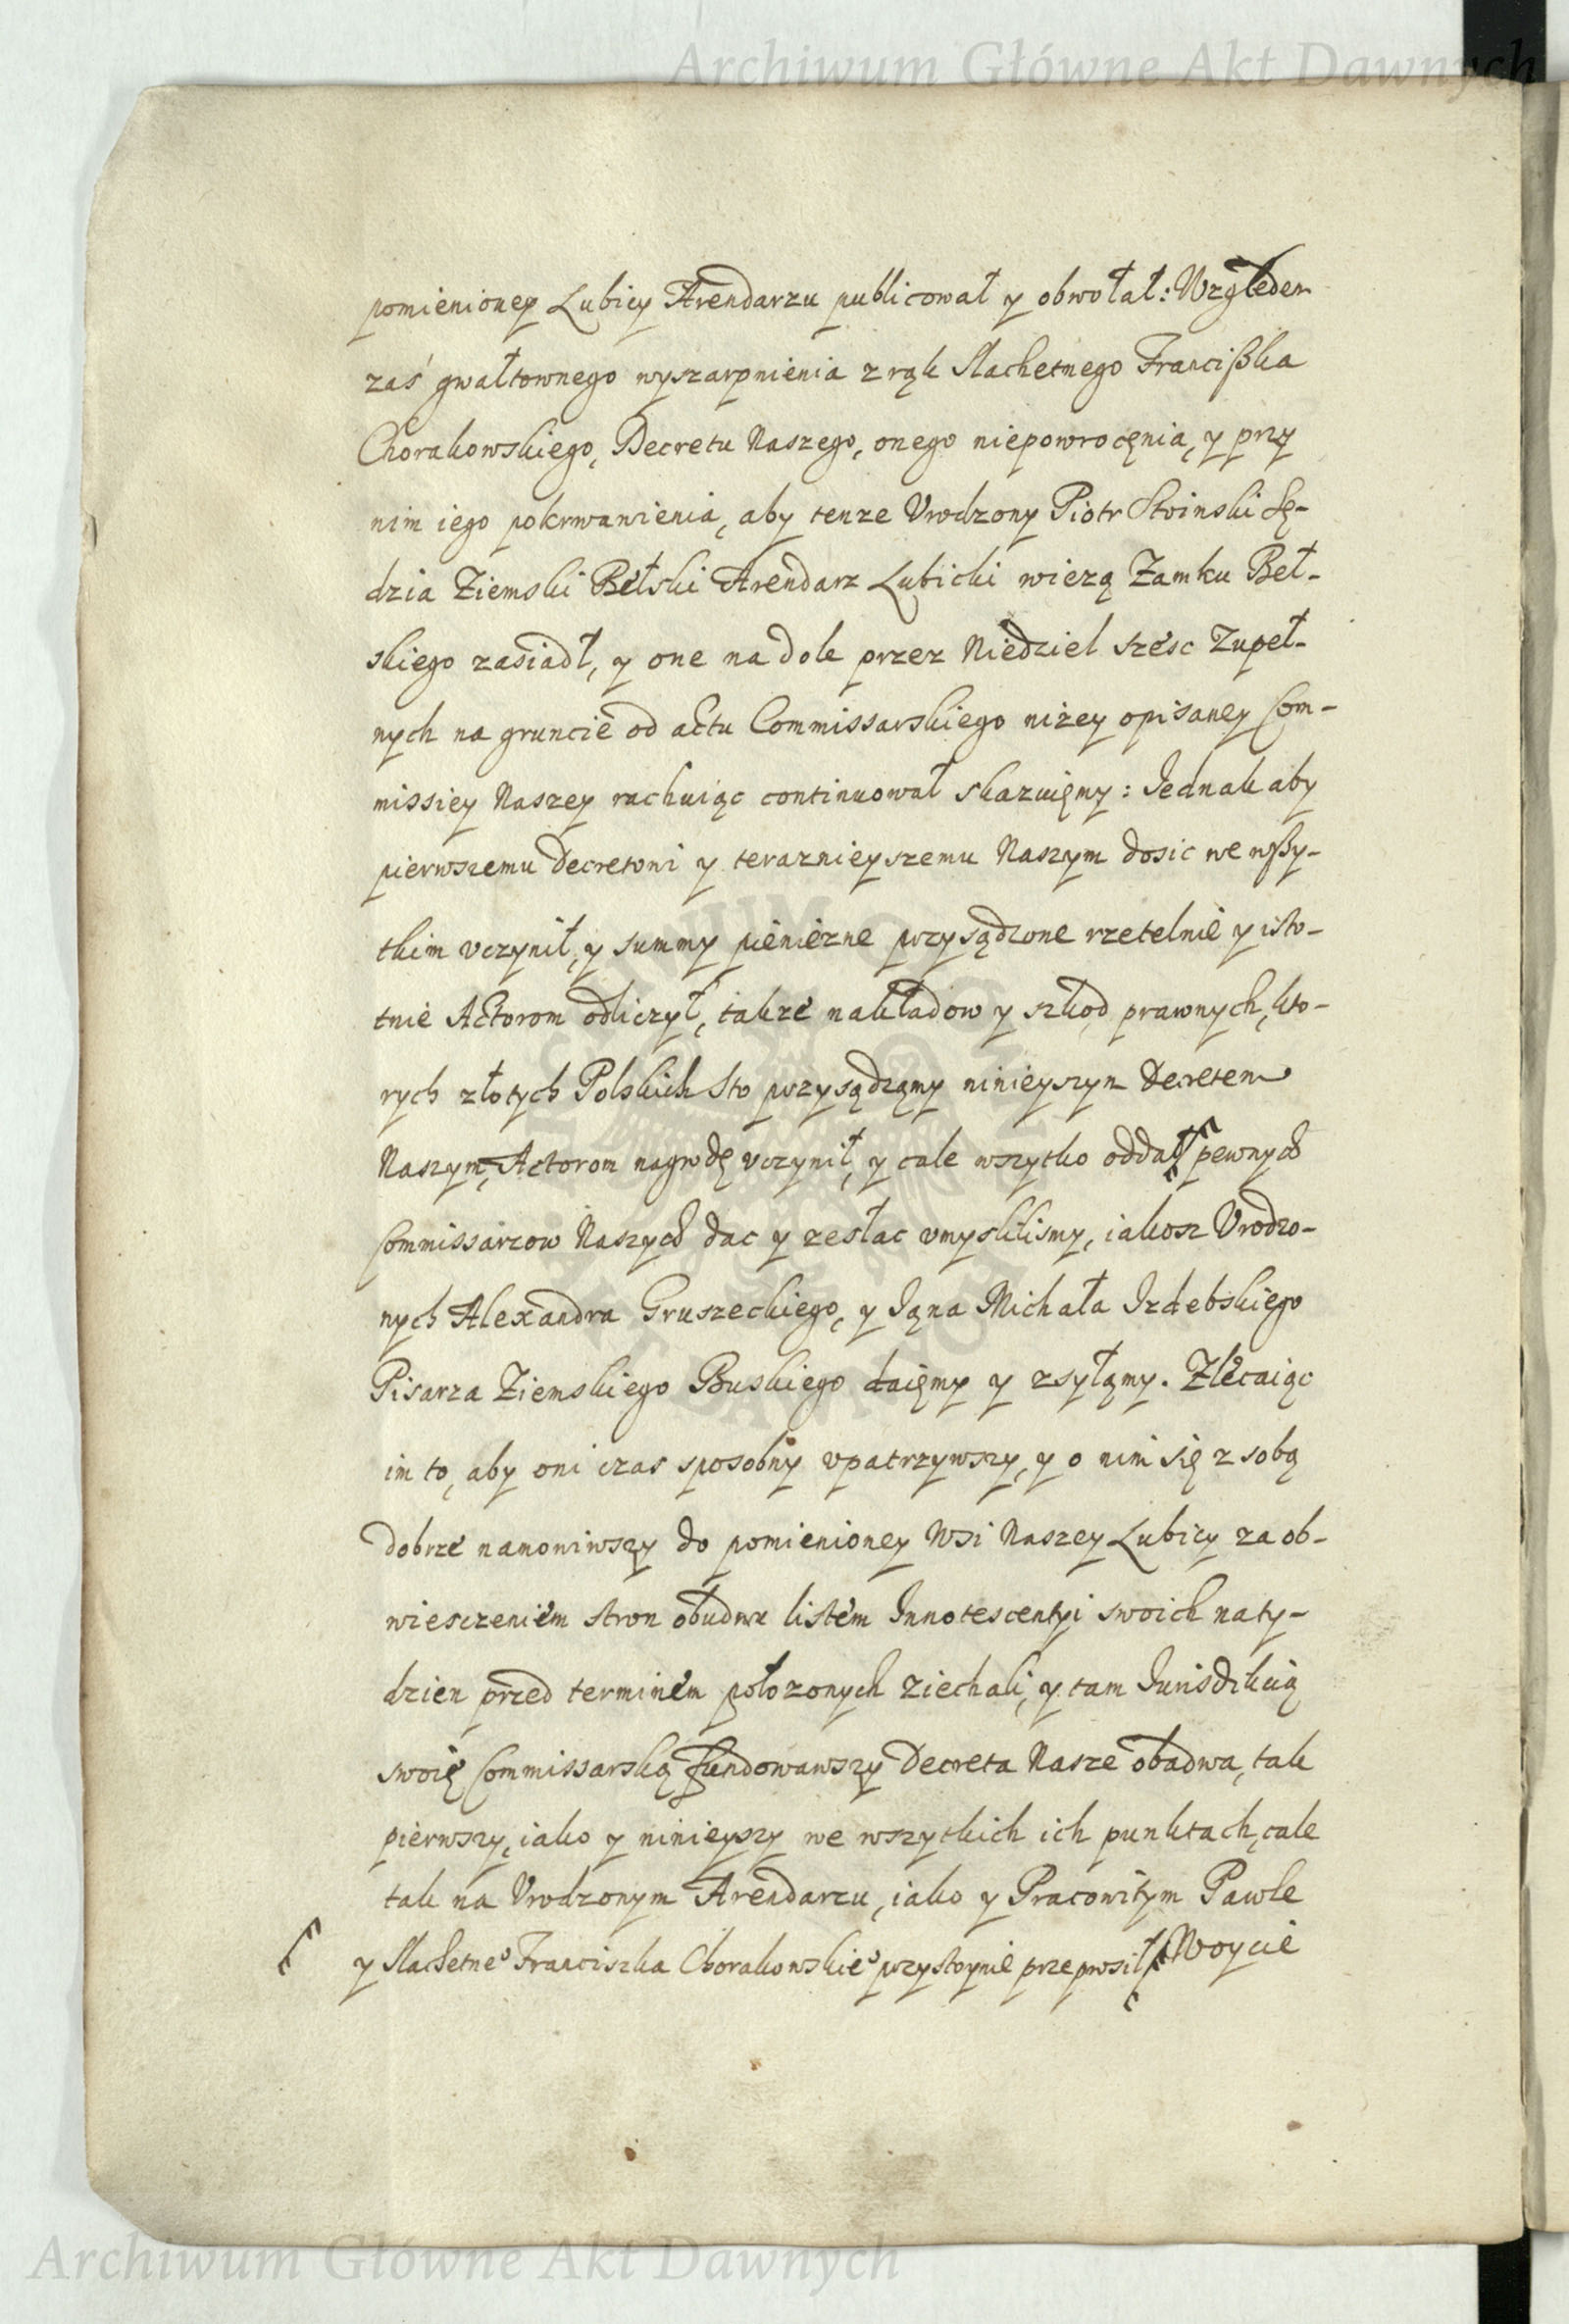 Archiwum Główne Akt Dawnych
pomienioney Lubicy Arendarzu publicował y obwołał: Względem
zaś gwałtownego wyszarpnienia z rąk Slachetnego Francißka
Chorakowskiego, Decretu Naszego, onego niepowrocęnia, y przy
nim iego pokrwawienia, aby tenze Vrodzony Piotr Stoinski Sę-
dzia Ziemski Bełski Arendarz Lubicki wiezą Zamku Beł-
skiego zasiadł, y one na dole przez Niedziel szesc Zupeł-
nych na gruncie od actu Commissarskiego niżey opisaney Com-
missiey Naszey rachuiąc continuował skazuięmy: Jednak aby
pierwszemu Decretowi y teraznieyszemu Naszym dosic we wßy-
tkim vczynił, y summy pieniezne przysądzone rzetelnie y isto-
tnie Actorom odliczył, takze nakładow y szkod prawnych, kto-
rych złotych Polskich Sto przysądzamy ninieyszym Decretem
Naszym, Actorom nagrodę vczynił, y cale wszytko oddał, pewnych
Commissarzow Naszych dac y zesłac vmysliliśmy, iakosz Vrodzo-
nych Alexandra Gruszeckiego, y Jąna Michała Izdebskiego
Pisarza Ziemskiego Buskiego daięmy y zsyłąmy. Zlecaiąc
im to, aby oni czas sposobny vpatrzywszy, y o nim się z sobą
dobrze namowiwszy do pomienioney Wsi Naszey Lubicy za ob-
wiesczeniem stron obudwu listem Innotescentyi swoich na ty-
dzien przed terminem położonych ziechali, y tam Jurisdikcią
swoię Commissarską fundowawszy Decreta Nasze obadwa, tak
pierwszy, iako y ninieyszy we wszytkich ich punktach, cale
tak na Vrodzonym Arendarzu, iako y Pracowitym Pawle
y Slachetneo Franciszka Chorakowskieo przystoynie przeprosił Woycie
Archiwum Główne Akt Dawnych